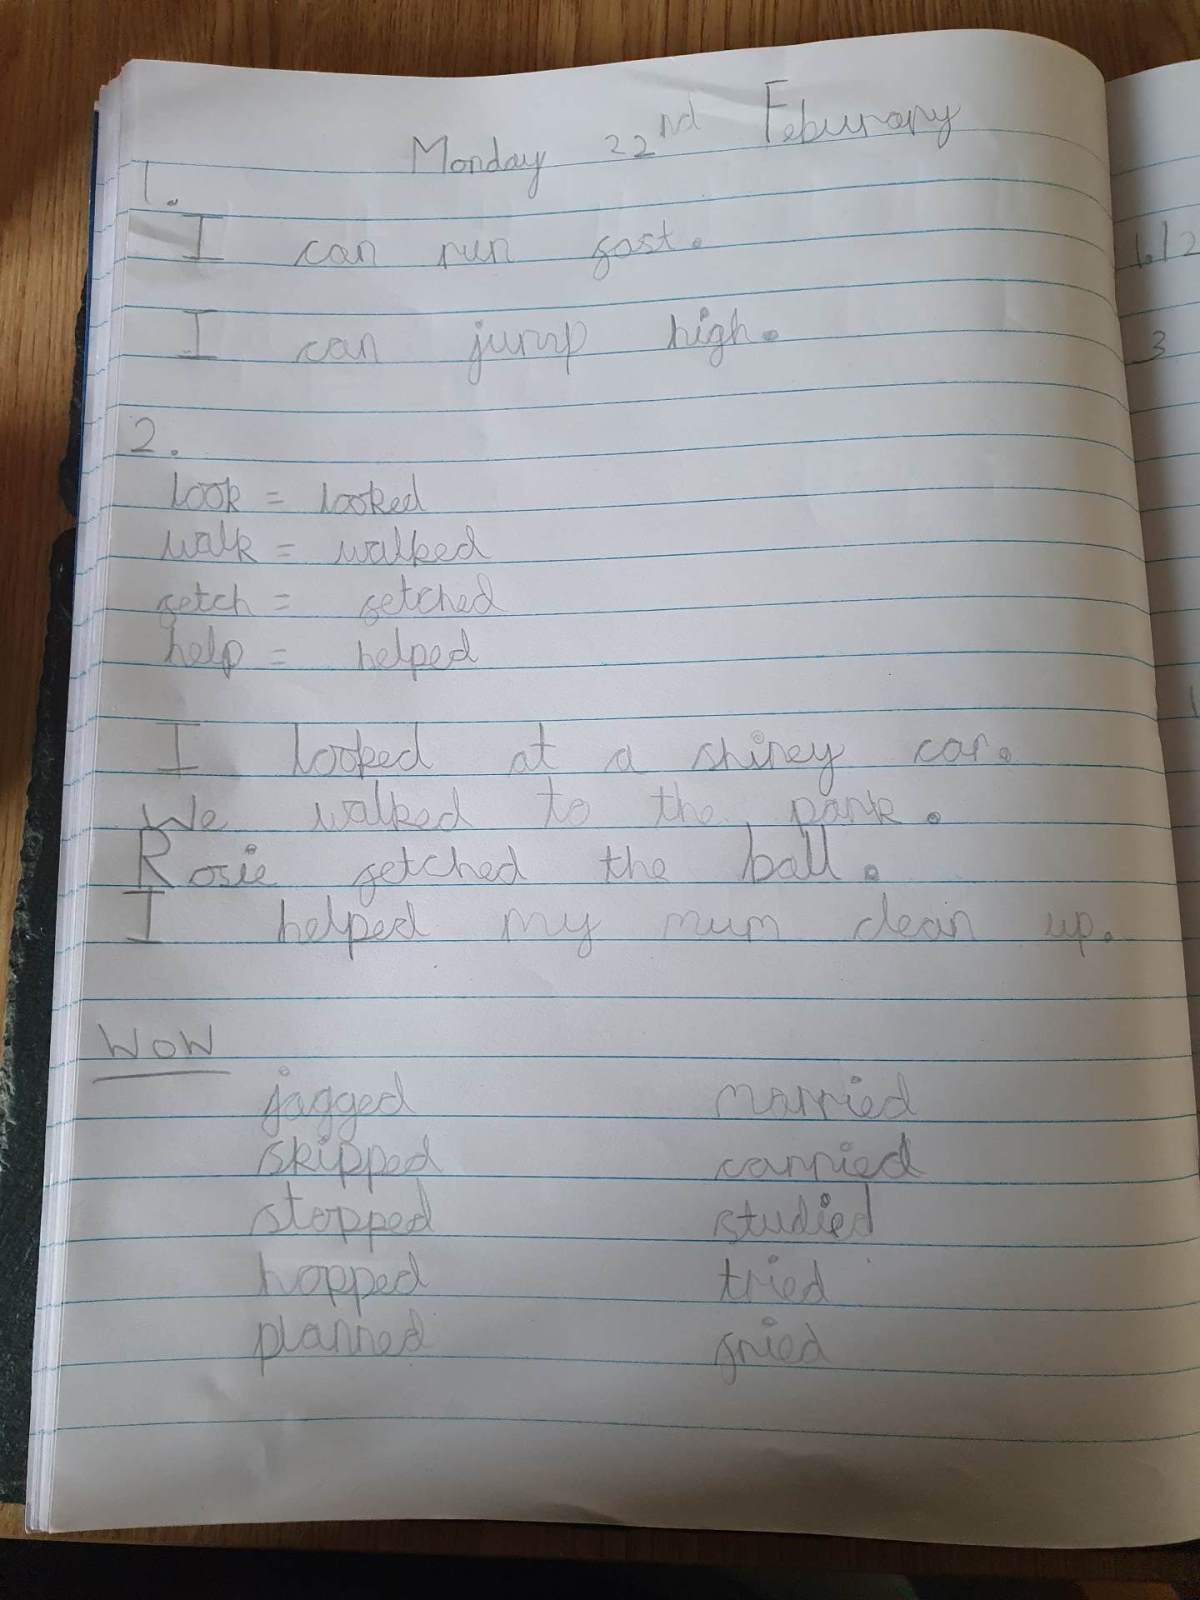 Monday 22nd Feburary
1.
I can run fast.
I can jump high.
2.
look = looked
walk = walked
fetch = fetched
help = helped
I looked at a shiney car.
We walked to the park.
Rosie fetched the ball.
I helped my mum clean up.
WOW
jogged married
skipped carried
stopped studied
hopped tried
planned fried
1.12
3